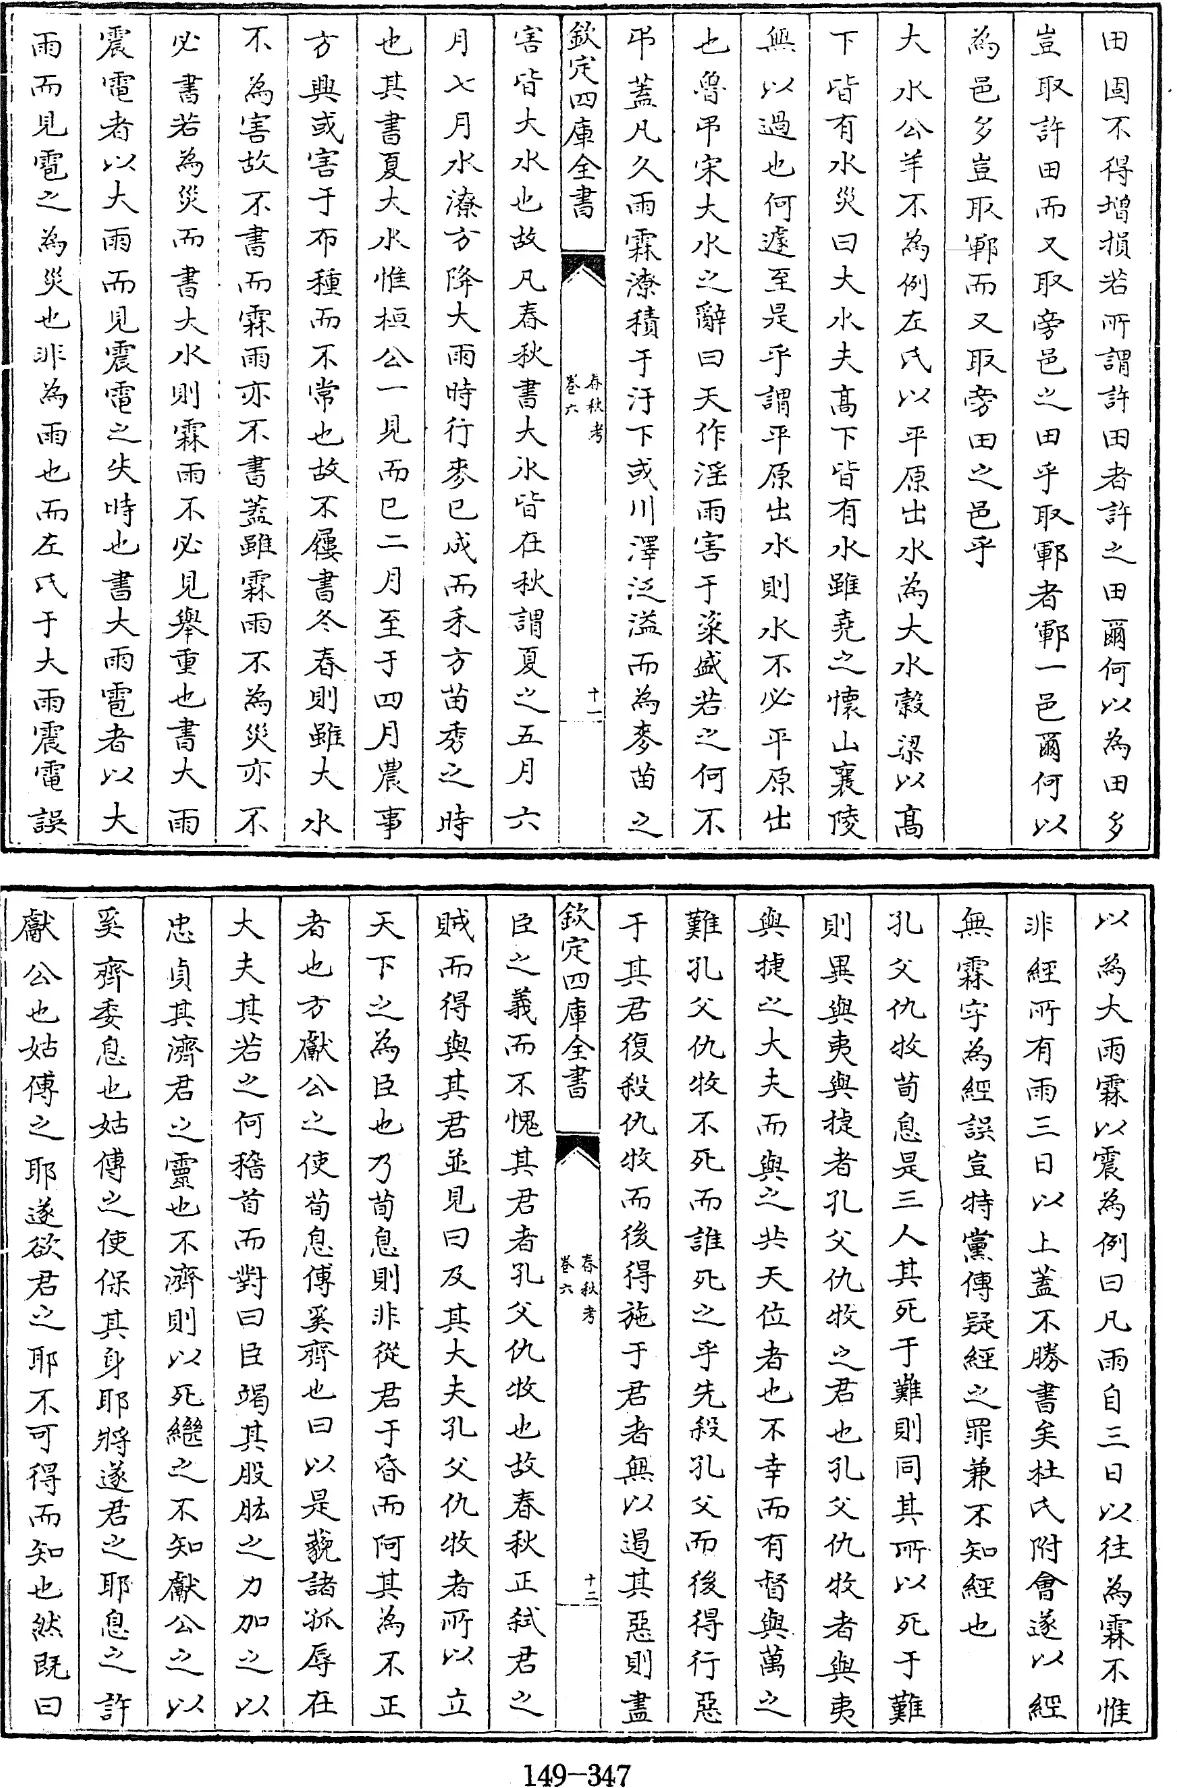 田固不得增損若所謂許田者許之田爾何以為田多
豈取許田而又取旁邑之田乎取鄆者鄆一邑爾何以
為邑多豈取鄆而又取旁田之邑乎
大水公羊不為例左氏以平原出水為大水穀梁以髙
下皆有水災曰大水夫髙下皆有水雖堯之懷山襄陵
無以過也何遽至是乎謂平原出水則水不必平原出
也魯弔宋大水之辭曰天作淫雨害于粢盛若之何不
弔蓋凡久雨霖潦積于汙下或川澤泛溢而為麥苗之
欽定四庫全書
春秋考
卷六
十一
害皆大水也故凡春秋書大水皆在秋謂夏之五月六
月七月水潦方降大雨時行麥已成而禾方苗秀之時
也其書夏大水惟桓公一見而已二月至于四月農事
方興或害于布種而不常也故不屢書冬春則雖大水
不為害故不書而霖雨亦不書蓋雖霖雨不為災亦不
必書若為災而書大水則霖雨不必見舉重也書大雨
震電者以大雨而見震電之失時也書大雨雹者以大
雨而見雹之為災也非為雨也而左氏于大雨震電誤
以為大雨霖以震為例曰凡雨自三日以往為霖不惟
非經所有雨三日以上蓋不勝書矣杜氏附會遂以經
無霖字為經誤豈特黨傳疑經之罪兼不知經也
孔父仇牧荀息是三人其死于難則同其所以死于難
則異與夷與捷者孔父仇牧之君也孔父仇牧者與夷
與捷之大夫而與之共天位者也不幸而有督與萬之
難孔父仇牧不死而誰死之乎先殺孔父而後得行惡
于其君復殺仇牧而後得施于君者無以遏其惡則盡
欽定四庫全書
春秋考
卷六
十二
臣之義而不愧其君者孔父仇牧也故春秋正弒君之
賊而得與其君並見曰及其大夫孔父仇牧者所以立
天下之為臣也乃荀息則非從君于昏而何其為不正
者也方獻公之使荀息傅奚齊也曰以是藐諸孤辱在
大夫其若之何稽首而對曰臣竭其股肱之力加之以
忠貞其濟君之靈也不濟則以死繼之不知獻公之以
奚齊委息也姑傅之使保其身耶將遂君之耶息之許
獻公也姑傅之耶遂欲君之耶不可得而知也然既曰
149-347